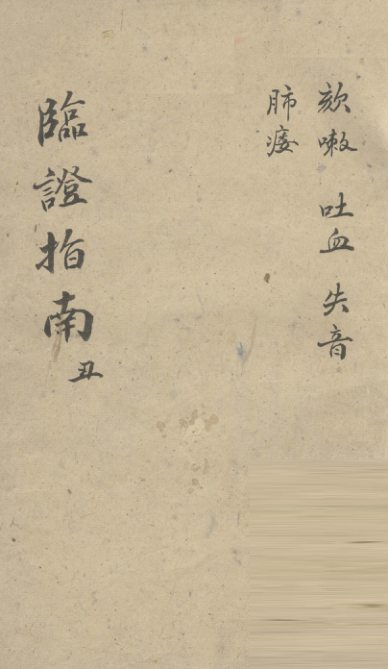 欬嗽 吐血 失音
肺痿
臨證指南 丑